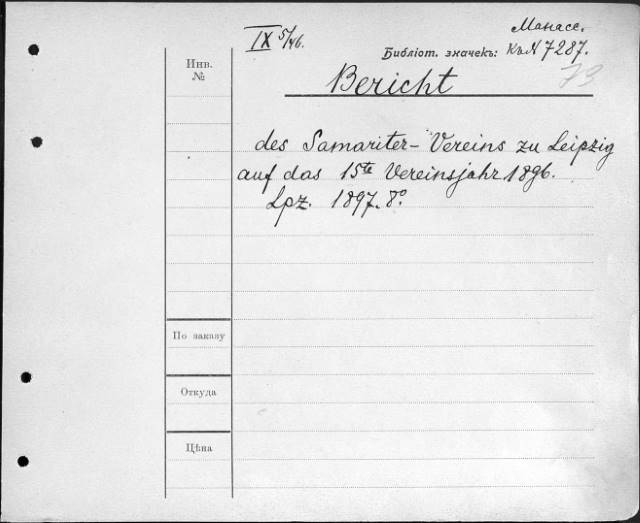 Манасс.
IX 5/46.
Библіот. значекъ: къ N 7287.
Инв.
№
79
Bericht
des Samariter-Vereins zu Leipzig
auf das 15te Vereinsjahr 1896.
Lpz. 1897. 8°.
По заказу
Откуда
Цѣна